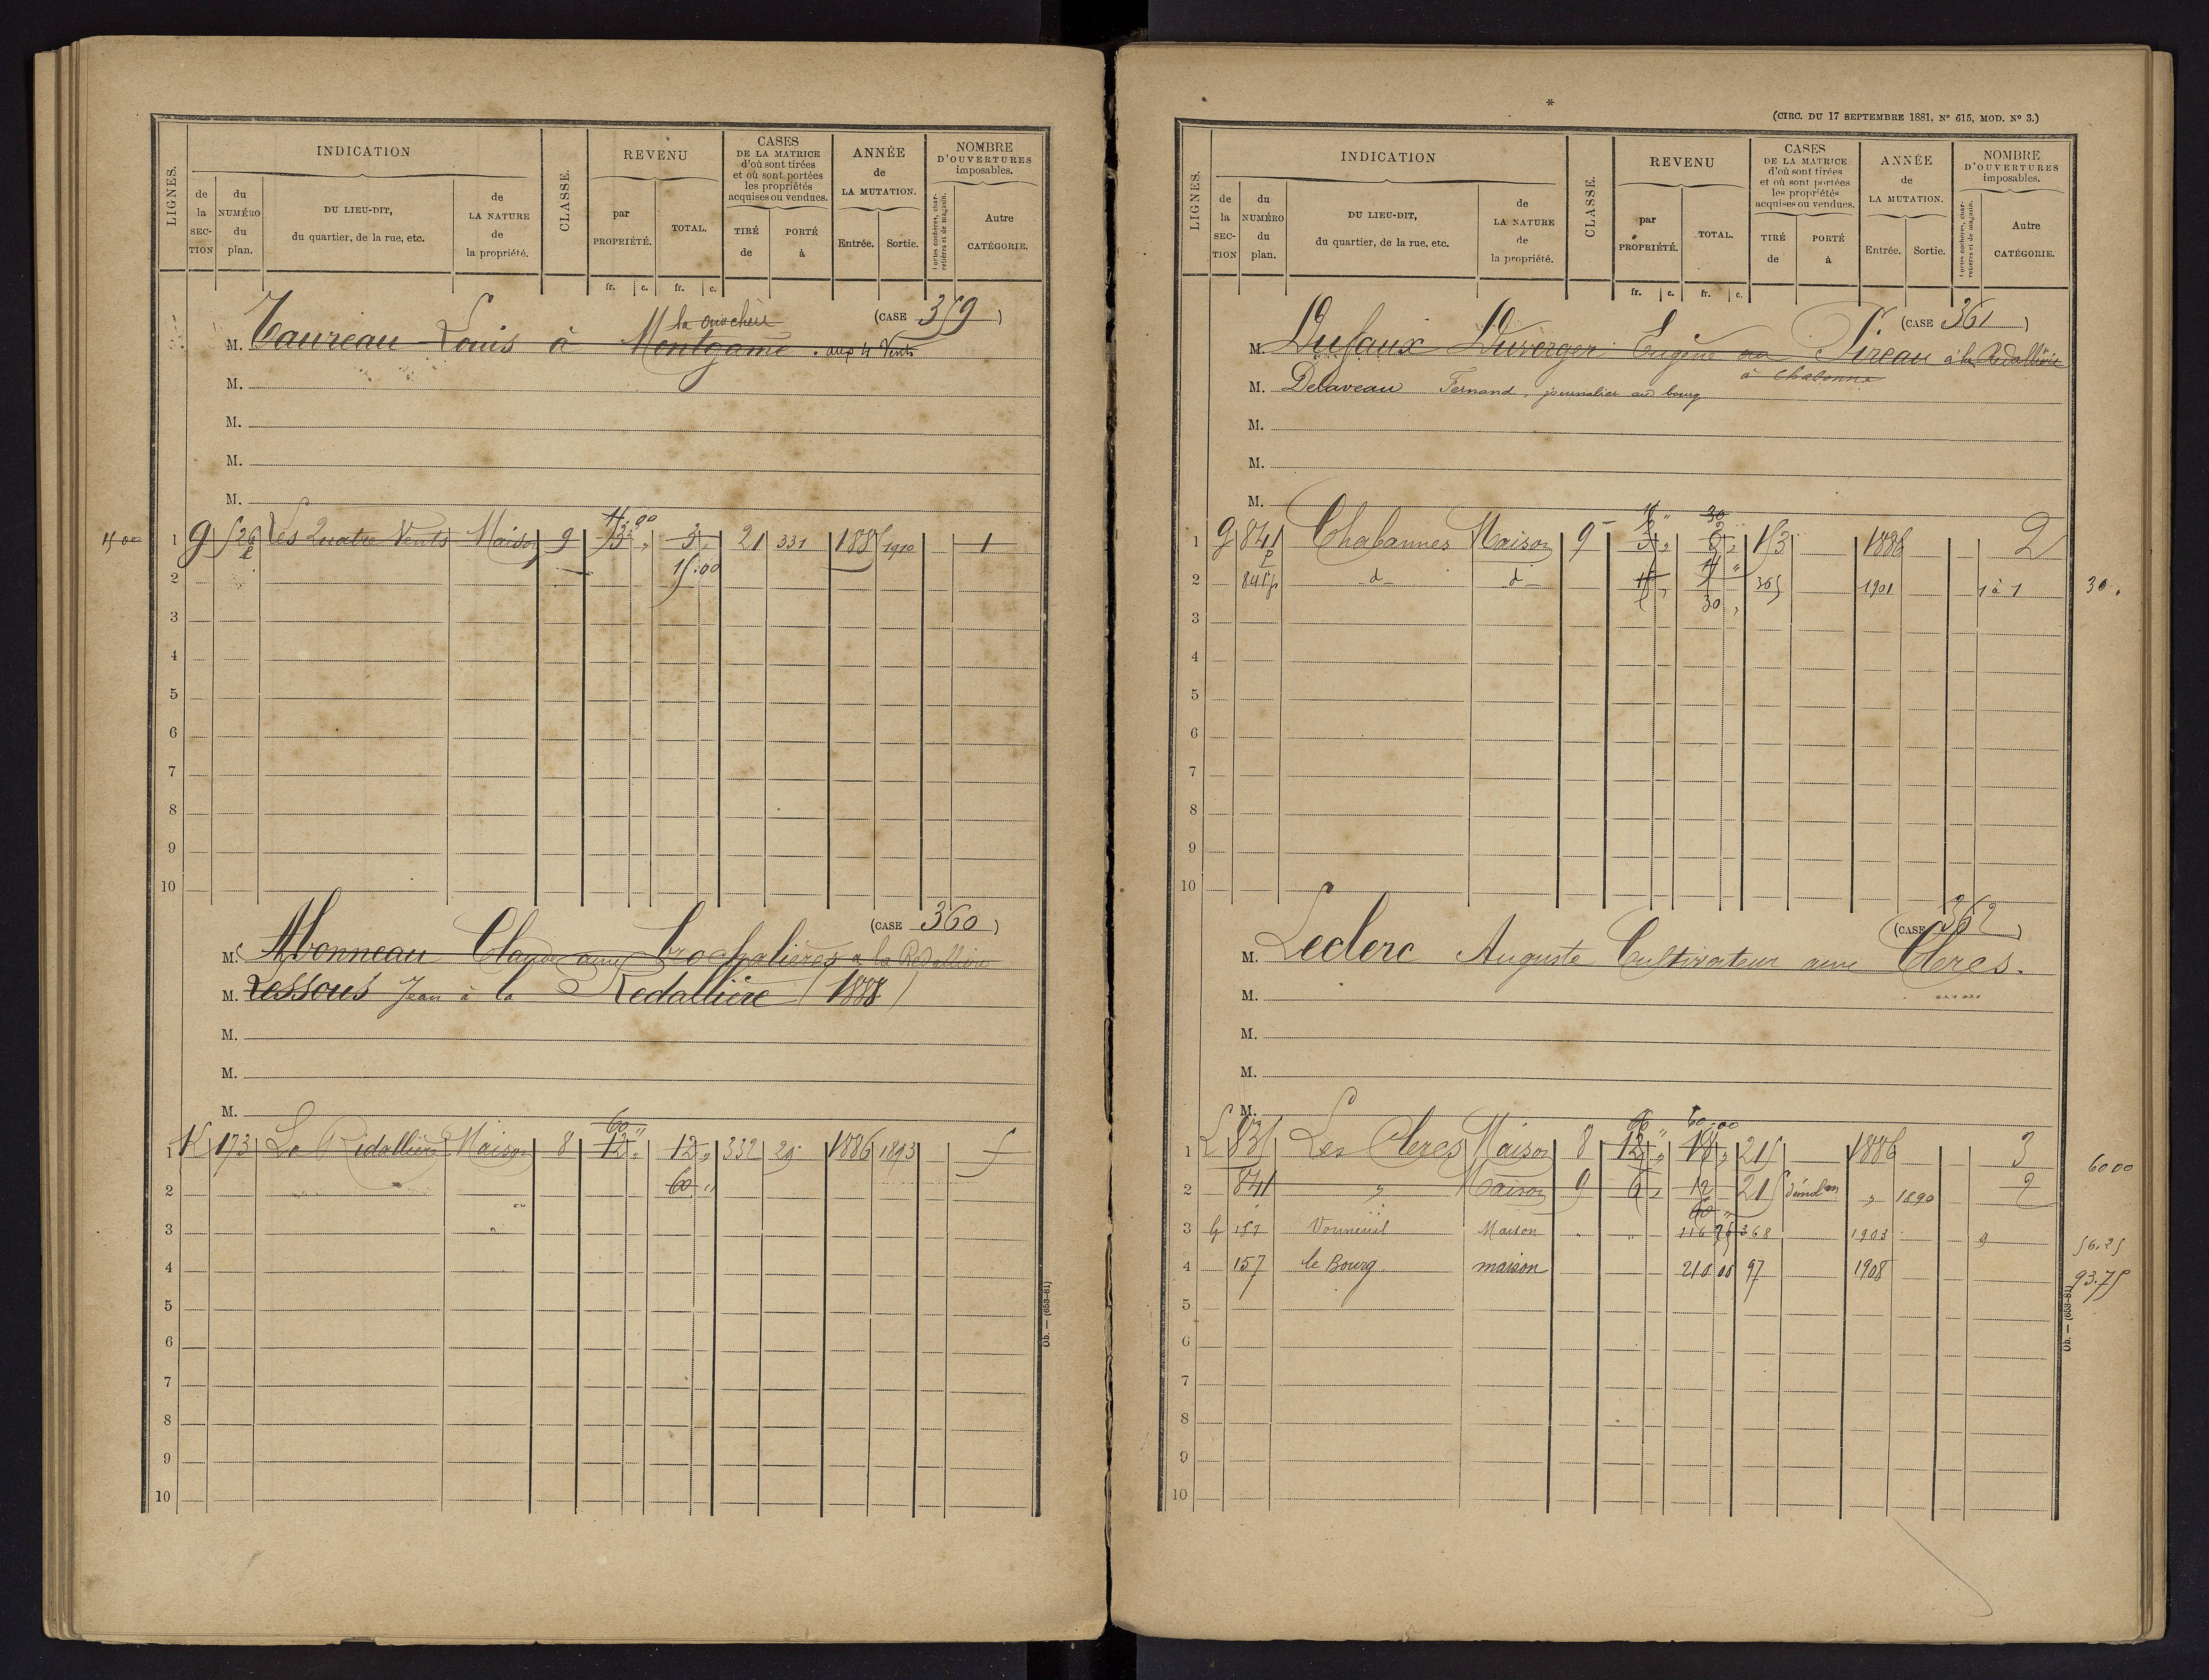 LIGNES.
INDICATION
de la SECTION
du NUMÉRO du plan.
DU LIEU-DIT, du quartier, de la rue, etc.
de LA NATURE de la propriété.
CLASSE.
REVENU
par PROPRIÉTÉ.
TOTAL.
CASES DE LA MATRICE d'où sont tirées et où sont portées les propriétés acquises ou vendues.
TIRÉ de
PORTÉ à
ANNÉE de LA MUTATION.
Entrée.
Sortie.
NOMBRE D'OUVERTURES imposables.
Portes cochères, charretières et de magasin.
Autre CATÉGORIE.
fr. c. fr. c.
(CASE 359)
M. Taureau Louis à Montgamé . aux 4 Vents
M.
M.
M.
M.
15.00
1 G 526 p Les Quatre Vents Maison 9 3 21 331 1886 1910 1
15.00
2
3
4
5
6
7
8
9
10
(CASE 360)
M. Abonneau Claude aux Brochalières à la Redallière
M. Lessous Jean à la Redallière (1888)
M.
M.
M.
60 "
1 K 173 La Ridallière Maison 8 12 12 332 29 1886 1893 5
2 60 "
3
4
5
6
7
8
9
10
Ob. — (653-81)
*
(CIRC. DU 17 SEPTEMBRE 1881, N° 615, MOD. N° 3.)
LIGNES.
INDICATION
de la SECTION
du NUMÉRO du plan.
DU LIEU-DIT, du quartier, de la rue, etc.
de LA NATURE de la propriété.
CLASSE.
REVENU
par PROPRIÉTÉ.
TOTAL.
CASES DE LA MATRICE d'où sont tirées et où sont portées les propriétés acquises ou vendues.
TIRÉ de
PORTÉ à
ANNÉE de LA MUTATION.
Entrée.
Sortie.
NOMBRE D'OUVERTURES imposables.
Portes cochères, charretières et de magasin.
Autre CATÉGORIE.
fr. c. fr. c.
(CASE 361)
M. Dufaux Duverger Eugène au Pireau à la Redallière
à Chabanne
M. Delaveau Fernand, journalier au bourg
M.
M.
M.
30
1 G 841 p Chabannes Maison 9 3 3 153 1886 2
2 841 p d d 15 365 1901 1 à 1 30 "
30 "
3
4
5
6
7
8
9
10
(CASE 362)
M. Leclerc Auguste Cultivateur aux Clercs.
M.
M.
M.
M.
60 " 60.00
1 L 835 Les Clercs Maison 8 12 18 215 1886 3 60 00
2 841 " Maison 9 6 12 215 démol on " 1890 2
60 "
3 G 157 Vouneuil Maison " " 116 25 368 1903 9 56.25
4 157 le Bourg maison 210 00 97 1908 93.75
5
6
7
8
9
10
Ob. — (653-81)